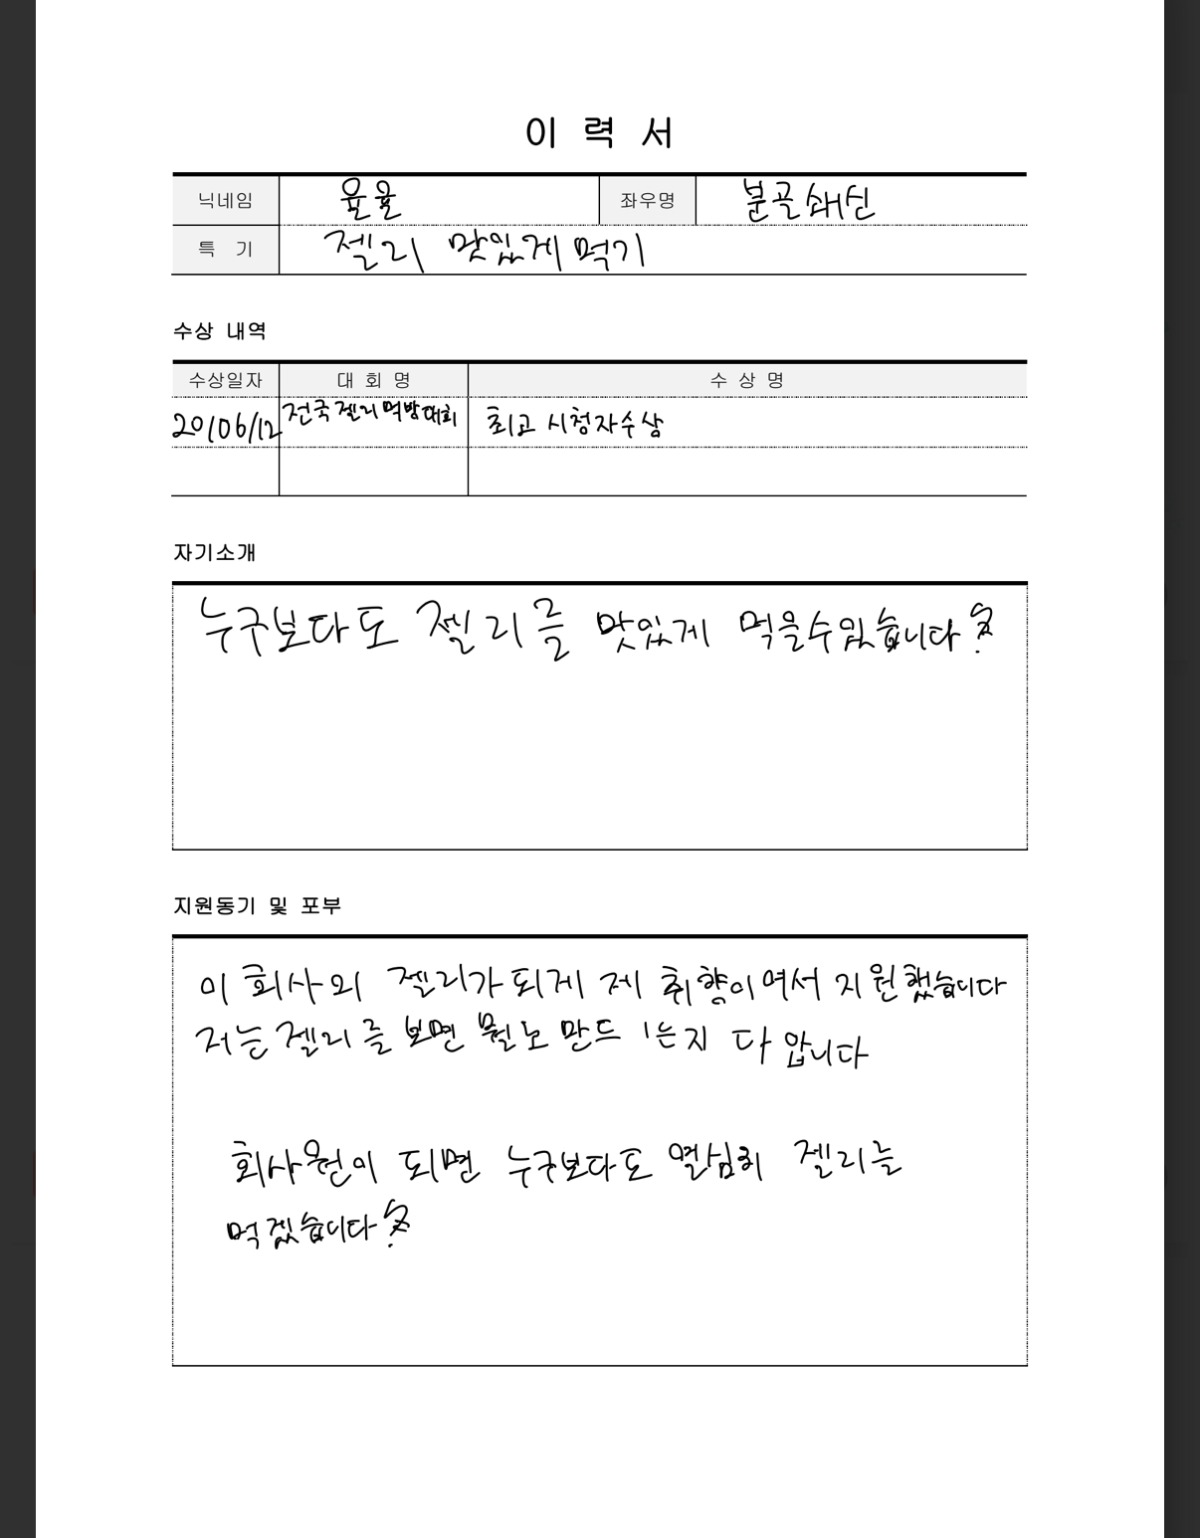 이 력 서
닉네임 율율 좌우명 분골쇄신
특 기 젤리 맛있게 먹기
수상 내역
수상일자 대 회 명 수 상 명
20106/12 전국젤리먹방대회 최고 시청자수상
자기소개
누구보다도 젤리를 맛있게 먹을수있습니다
지원동기 및 포부
이 회사의 젤리가 되게 제 취향이여서 지원했습니다
저는 젤리를 보면 뭘로 만드는지 다 압니다
회사원이 되면 누구보다도 열심히 젤리를
먹겠습니다